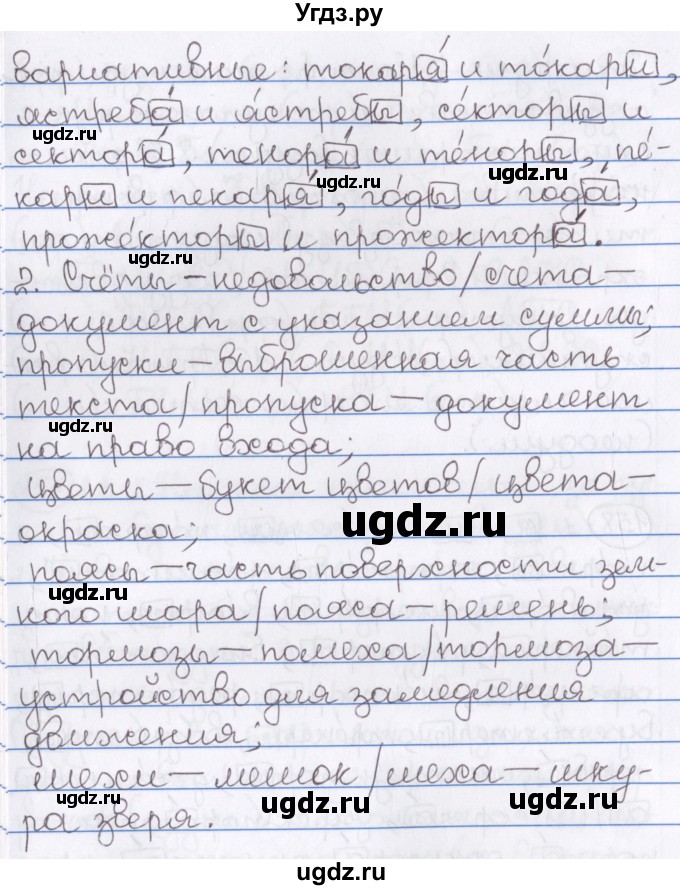 Угдз.ру
вариативные: токаря́ и то́кари,
ястреба́ и я́стребы, се́кторы и
сектора́, тенора́ и те́норы, пе́-
кари и пекаря́, го́ды и года́,
проже́кторы и прожектора́.
2. Счёты – недовольство / счета –
документ с указанием суммы;
пропуски – выброшенная часть
текста / пропуска – документ
на право входа;
цветы – букет цветов / цвета –
окраска;
поясы – часть поверхности зем-
ного шара / пояса – ремень;
тормозы – помеха / тормоза –
устройство для замедления
движения;
мехи – мешок / меха – шку-
ра зверя.
ugdz.ru
ugdz.ru
ugdz.ru
ugdz.ru
ugdz.ru
ugdz.ru
ugdz.ru
ugdz.ru
ugdz.ru
ugdz.ru
ugdz.ru
ugdz.ru
ugdz.ru